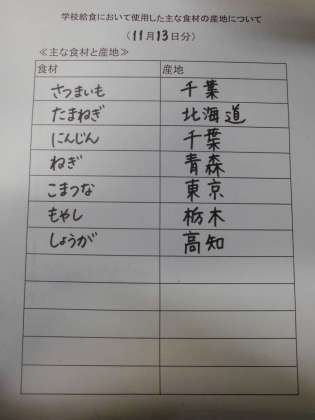 学校給食において使用した主な食材の産地について
(11月13日分)
≪主な食材と産地≫
食材 産地
さつまいも 千葉
たまねぎ 北海道
にんじん 千葉
ねぎ 青森
こまつな 東京
もやし 栃木
しょうが 高知